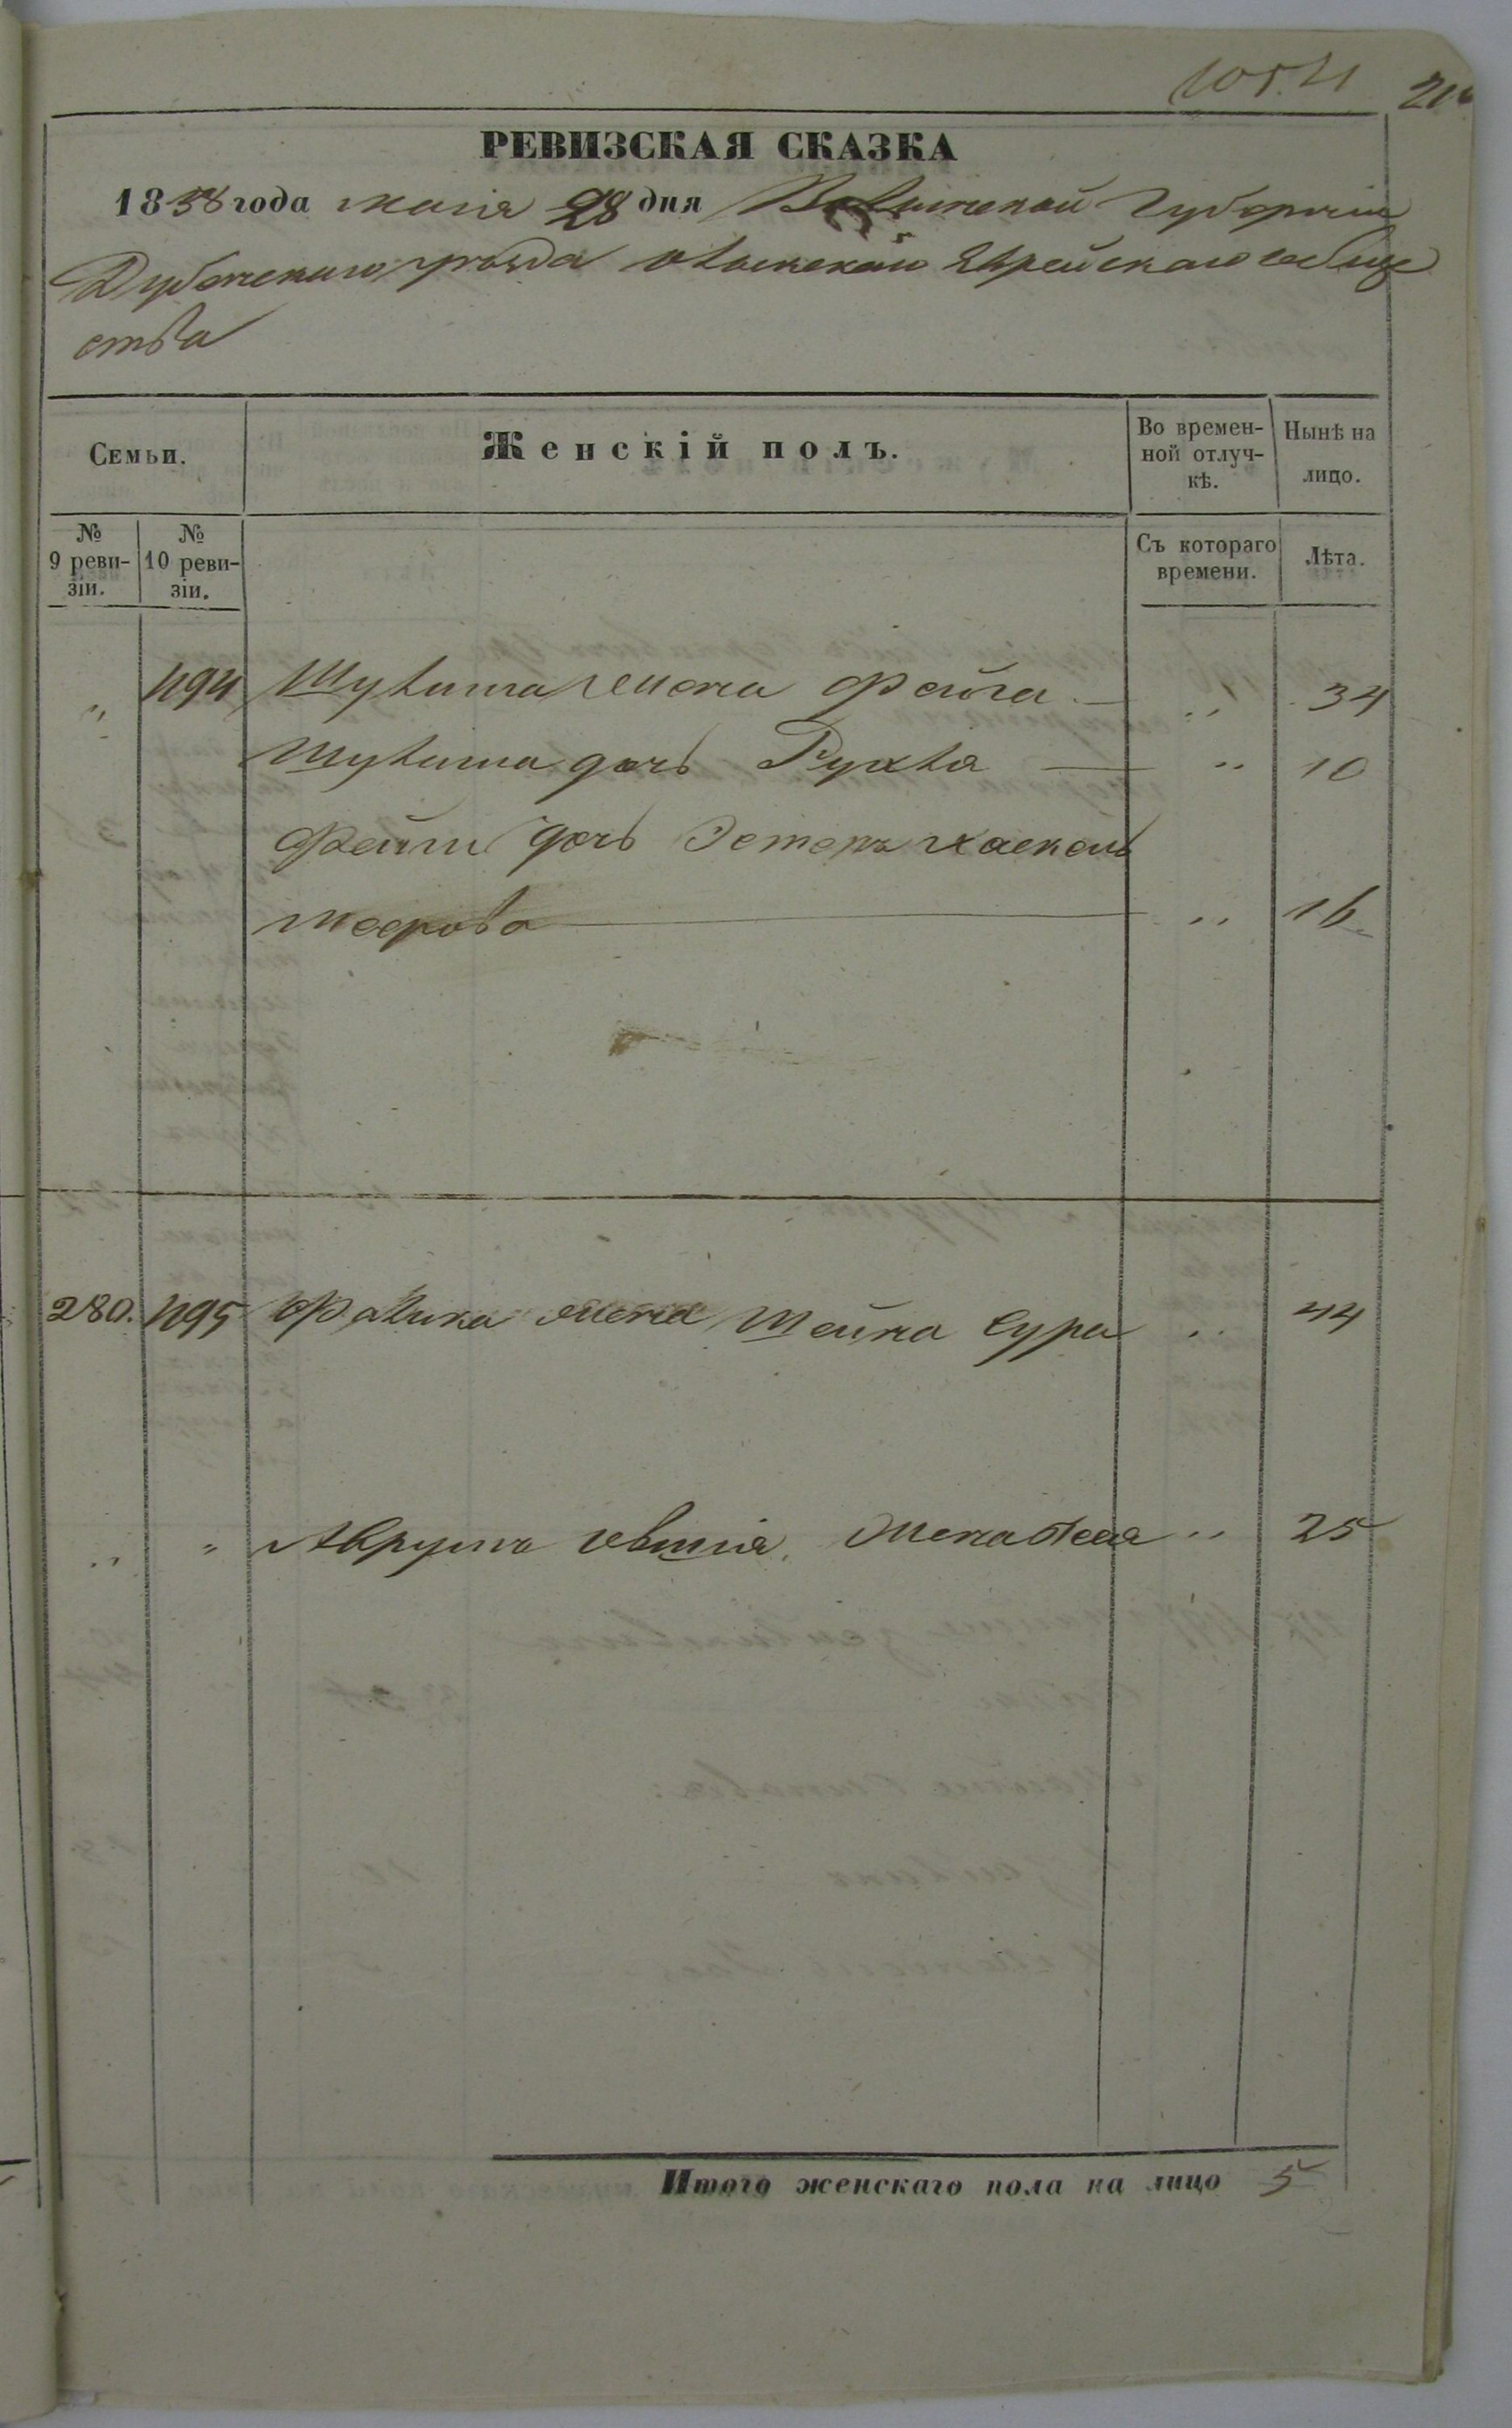 1054
РЕВИЗСКАЯ СКАЗКА
1858 года маія 28 дня Волынской Губерніи
Дубенскаго уѣзда Еврейскаго обще
ства
Семьи.
Женскій полъ.
Во времен-
ной отлуч-
кѣ.
Нынѣ на
лицо.
№
9 реви-
зіи.
№
10 реви-
зіи.
Съ котораго
времени.
Лѣта.
" 494 Шулима жена Фейга — " 34
Шулима дочь Рухля — " 10
Фейги дочь Эстеръ
Меерова — " 16
280. 495 жена Шейна Сура " 44
" " Аврума жена " 25
Итого женскаго пола на лицо 5